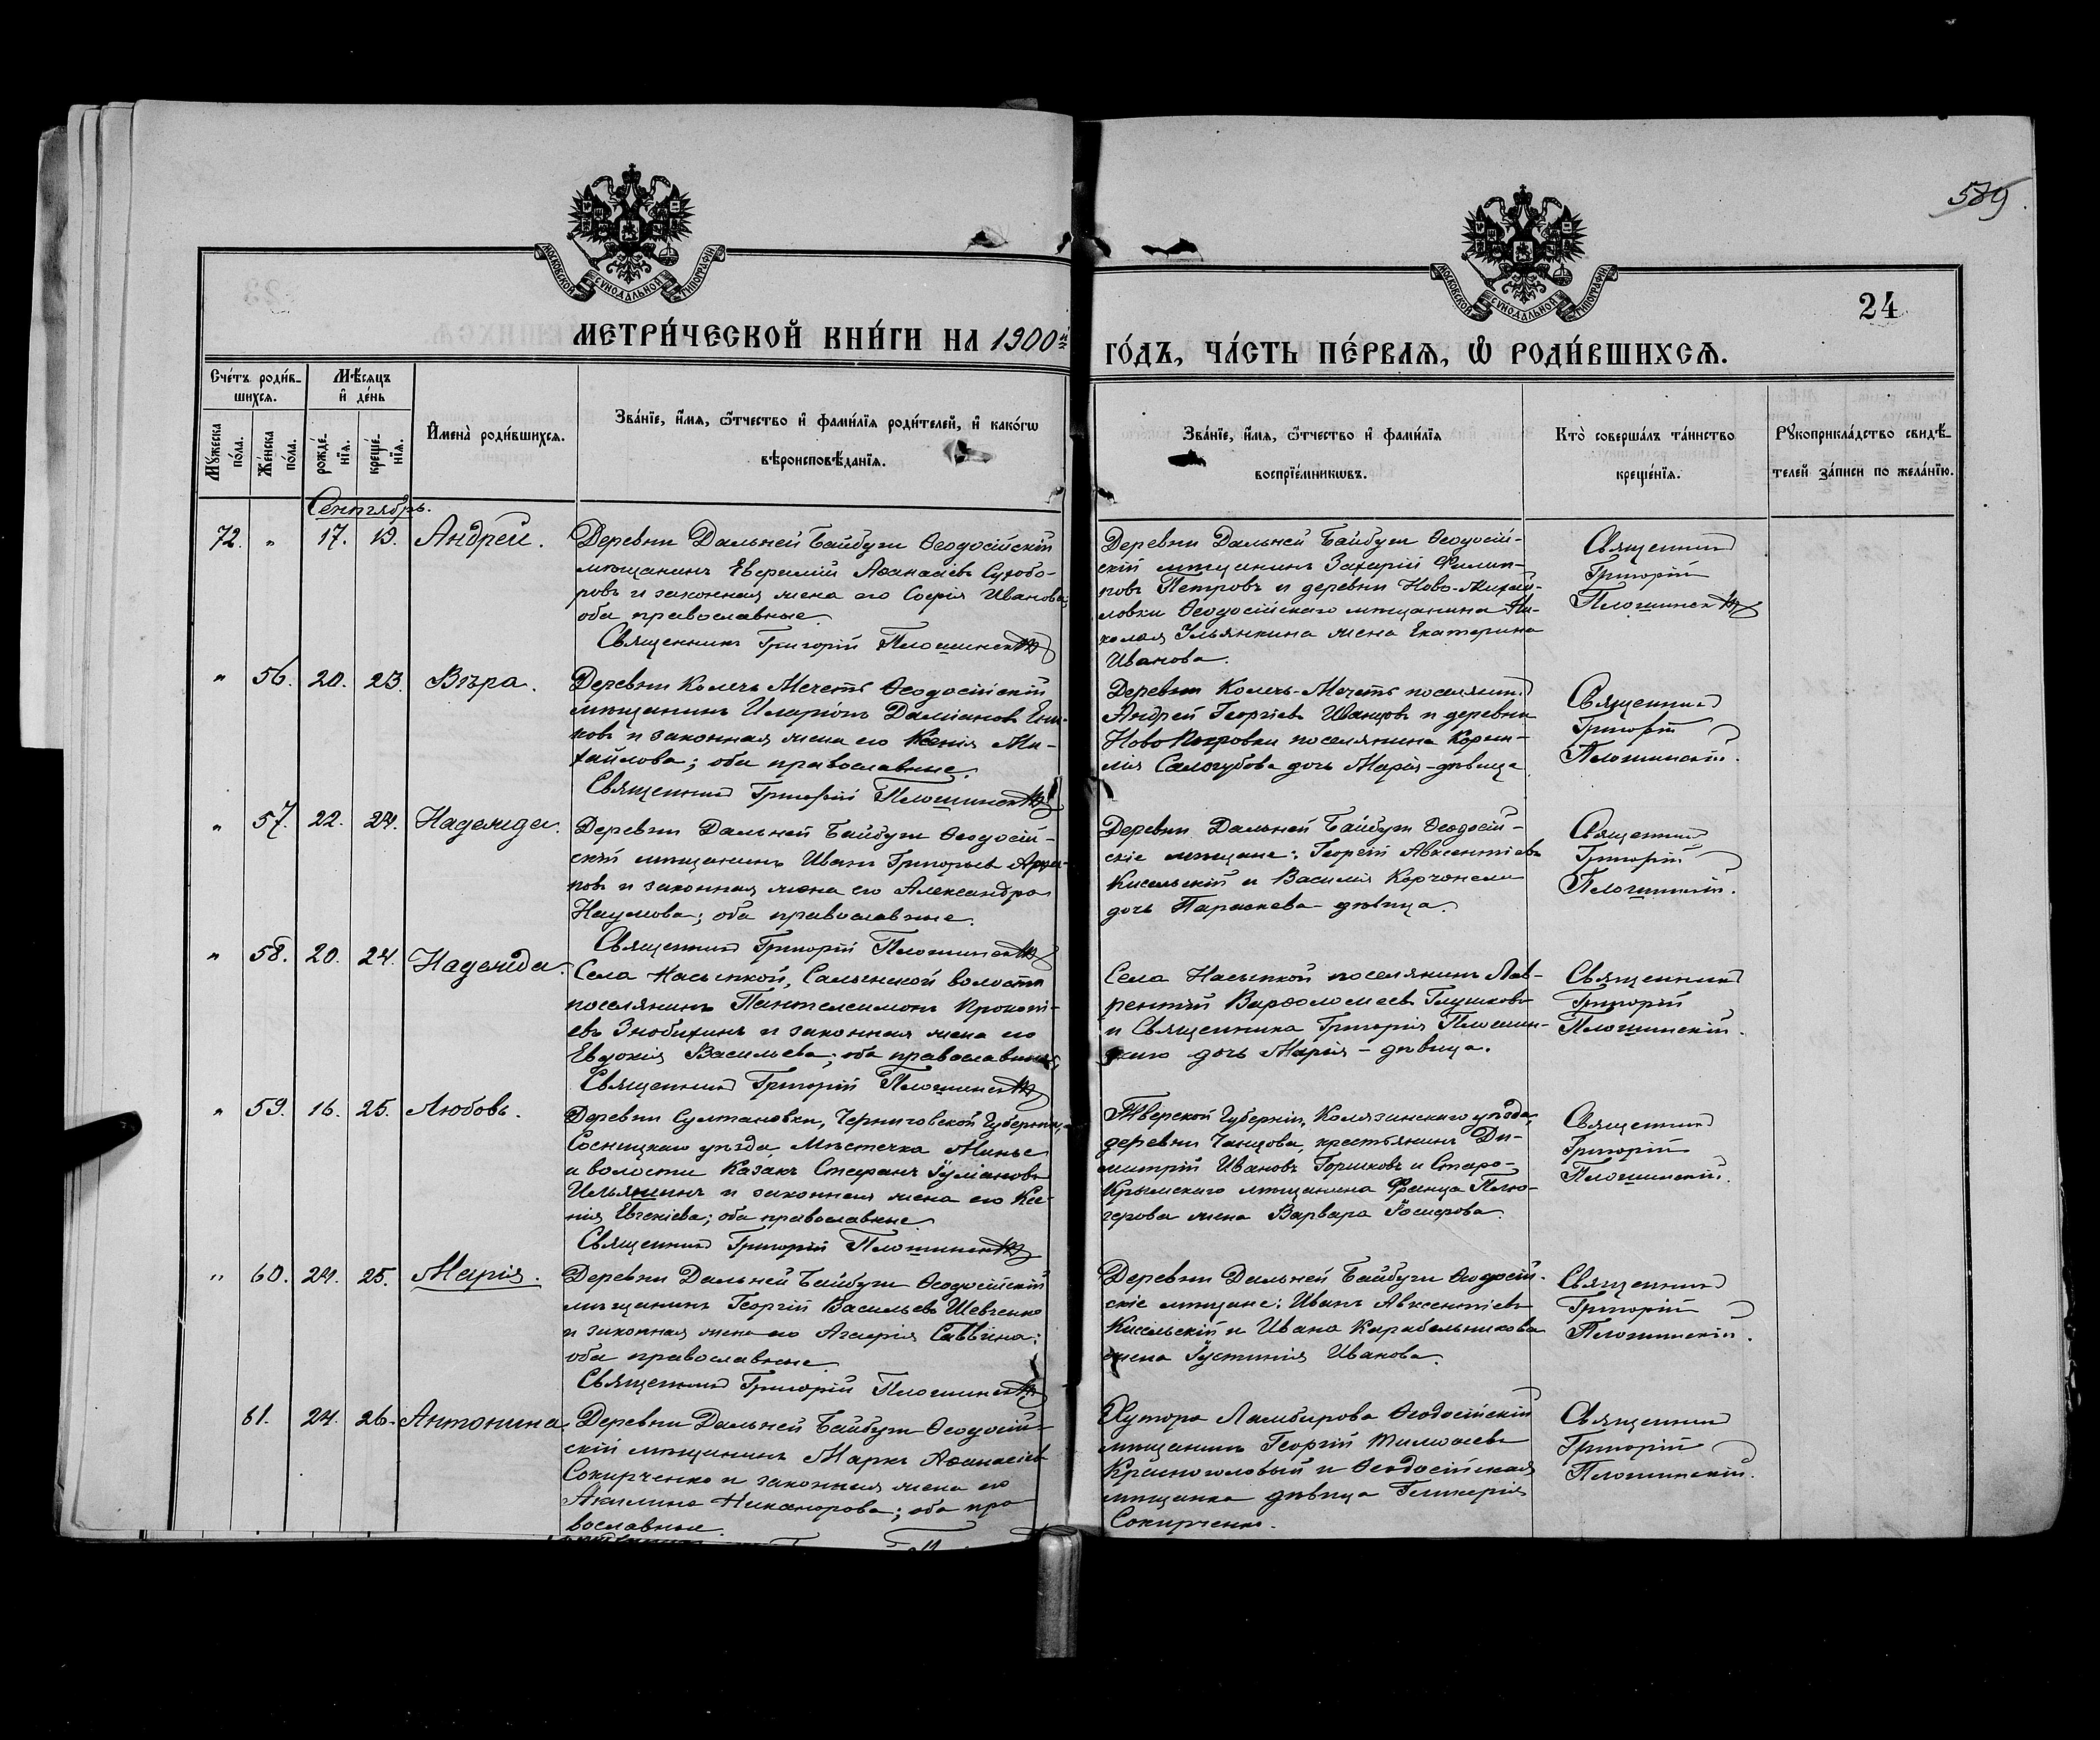 589
МОСКОВСКОЙ СѴНОДАЛЬНОЙ ТИПОГРАФІИ
МОСКОВСКОЙ СѴНОДАЛЬНОЙ ТИПОГРАФІИ
24
МЕТРИ́ЧЕСКОЙ КНИ́ГИ НА 1900й
ГО́ДЪ, ЧА́СТЬ ПЕ́РВАѦ, Ѿ РОДИ́ВШИХСѦ.
Сче́тъ роди́в-
шихсѧ.
Мꙋ́жеска по́ла.
Же́нска по́ла.
Мѣ́сѧцъ
и҆ де́нь
рожде́-
нїѧ.
креще́-
нїѧ.
И҆мена̀ роди́вшихсѧ.
Зва́нїе, и҆́мѧ, ѻ҆́тчество и҆ фами́лїѧ роди́телей, и҆ како́гѡ
вѣроисповѣ́данїѧ.
Зва́нїе, и҆́мѧ, ѻ҆́тчество и҆ фами́лїѧ
воспрїе́мникѡвъ.
Кто̀ соверша́лъ та́инство
креще́нїѧ.
Рꙋкоприкла́дство свидѣ́-
телей за́писи по жела́нїю.
Сентябрь.
72. " 17. 19. Андрей.
Деревни Дальней Байбуги Ѳеодосійскій
мѣщанинъ Евфимій Аѳанасіевъ Сухобо-
ровъ и законная жена его Софія Иванова
оба православные.
Священникъ Григорій Плошинскій
Деревни Дальней Байбуги Ѳеодосій-
скій мѣщанинъ Захарій Филип-
повъ Петровъ и деревни Ново-Михай-
ловки Ѳеодосійскаго мѣщанина Ни-
колая Ульянкина жена Екатерина
Иванова.
Священникъ
Григорій
Плошинскій
" 56. 20. 23. Вѣра.
Деревни Колечь Мечеть Ѳеодосійскій
мѣщанинъ Иларіонъ Даміановъ
ковъ и законная жена его Ксенія Ми-
хайлова; оба православные.
Священникъ Григорій Плошинскій
Деревни Колечь-Мечеть поселянинъ
Андрей Георгіевъ Иванцовъ и деревни
Ново Покровки поселянина Корни-
лія Салогубова дочь Марія-дѣвица
Священникъ
Григорій
Плошинскій.
" 57. 22. 24. Надежда.
Деревни Дальней Байбуги Ѳеодосій-
скій мѣщанинъ Иванъ Григорьевъ
повъ и законная жена его Александра
Наумова; оба православные.
Священникъ Григорій Плошинскій
Деревни Дальней Байбуги Ѳеодосій-
скіе мѣщане: Георгій Авксентіевъ
Кисельскій и Василія
дочь Параскева-дѣвица.
Священникъ
Григорій
Плошинскій.
" 58. 20. 24. Надежда.
Села Насыпкой, Салынской волости
поселянинъ Пантелеимонъ Прокопі-
евъ Знобихинъ и законная жена его
Евдокія Васильева; оба православные
Священникъ Григорій Плошинскій
Села Насыпкой поселянинъ Лав-
рентій Варѳоломеевъ Глушковъ
и Священника Григорія Плошин-
скаго дочь Марія-дѣвица.
Священникъ
Григорій
Плошинскій.
" 59. 16. 25. Любовь.
Деревни Султановки, Черниговской Губерніи,
Сосницкаго уѣзда, Мѣстечка
и волости Казакъ Стефанъ
Ильяшинъ и законная жена его Ксе-
нія Евгеніева; оба православные.
Священникъ Григорій Плошинскій
Тверской Губерніи, Колязинскаго уѣзда,
деревни Чанцова, крестьянинъ Ди-
митрій Ивановъ Горшковъ и Старо-
Крымскаго мѣщанина Франца
жена Варвара
Священникъ
Григорій
Плошинскій.
" 60. 24. 25. Марія.
Деревни Дальней Байбуги Ѳеодосійскій
мѣщанинъ Георгій Васильевъ Шевченко
и законная жена его Агафія Саввина;
оба православные.
Священникъ Григорій Плошинскій
Деревни Дальней Байбуги Ѳеодосій-
скіе мѣщане: Иванъ Авксентіевъ
Кисельскій и Ивана Карабельникова
жена Іустинія Иванова.
Священникъ
Григорій
Плошинскій.
61. 24. 26. Антонина.
Деревни Дальней Байбуги Ѳеодосій-
скій мѣщанинъ Маркъ Аѳанасіевъ
Сокирченко и законная жена его
Акилина Никанорова; оба пра
вославные.
Хутора Ламбирова Ѳеодосійскій
мѣщанинъ Георгій
Красноголовый и Ѳеодосійская
мѣщанка дѣвица Гликерія
Сокирченко.
Священникъ
Григорій
Плошинскій.